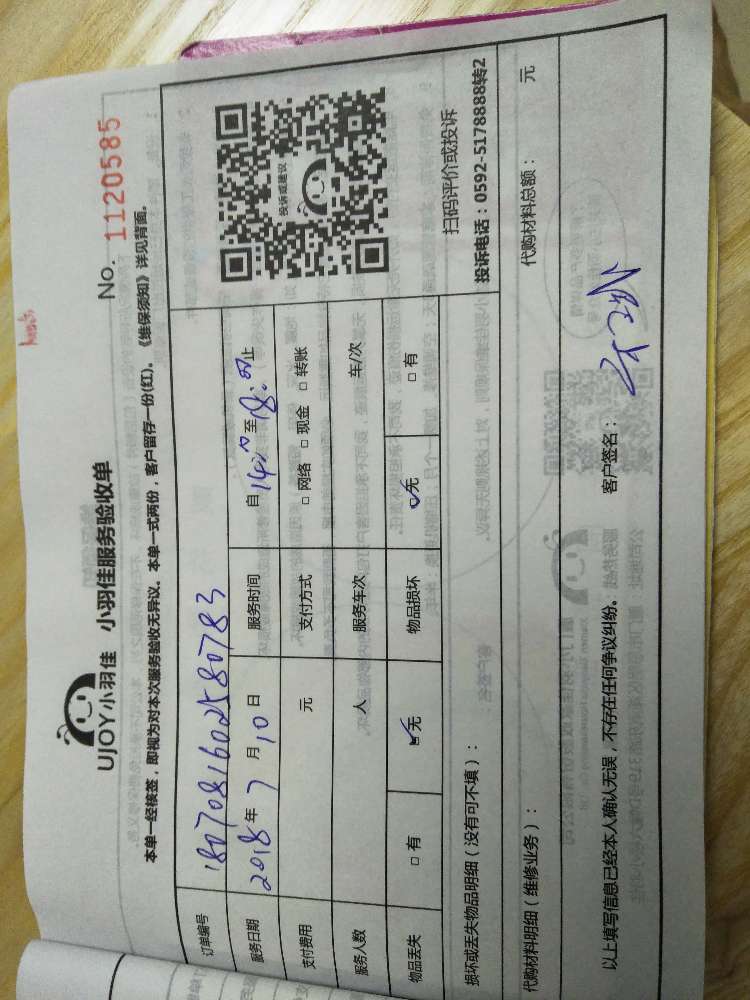 UJOY小羽佳 小羽佳服务验收单 No. 1120585
本单一经核签，即视为对本次服务验收无异议。本单一式两份，客户留存一份(红)。《维保须知》详见背面。
订单编号 1807081602580783
服务日期 2018年7月10日 服务时间 自14:00至18:00止
支付费用 元 支付方式 □网络 □现金 □转账
服务人数 人 服务车次 车/次
物品丢失 □有 □无 物品损坏 □无 □有
投诉或建议
扫码评价或投诉
投诉电话：0592-5178888转2
损坏或丢失物品明细（没有可不填）：
代购材料明细（维修业务）： 代购材料总额： 元
以上填写信息已经本人确认无误，不存在任何争议纠纷。 客户签名：